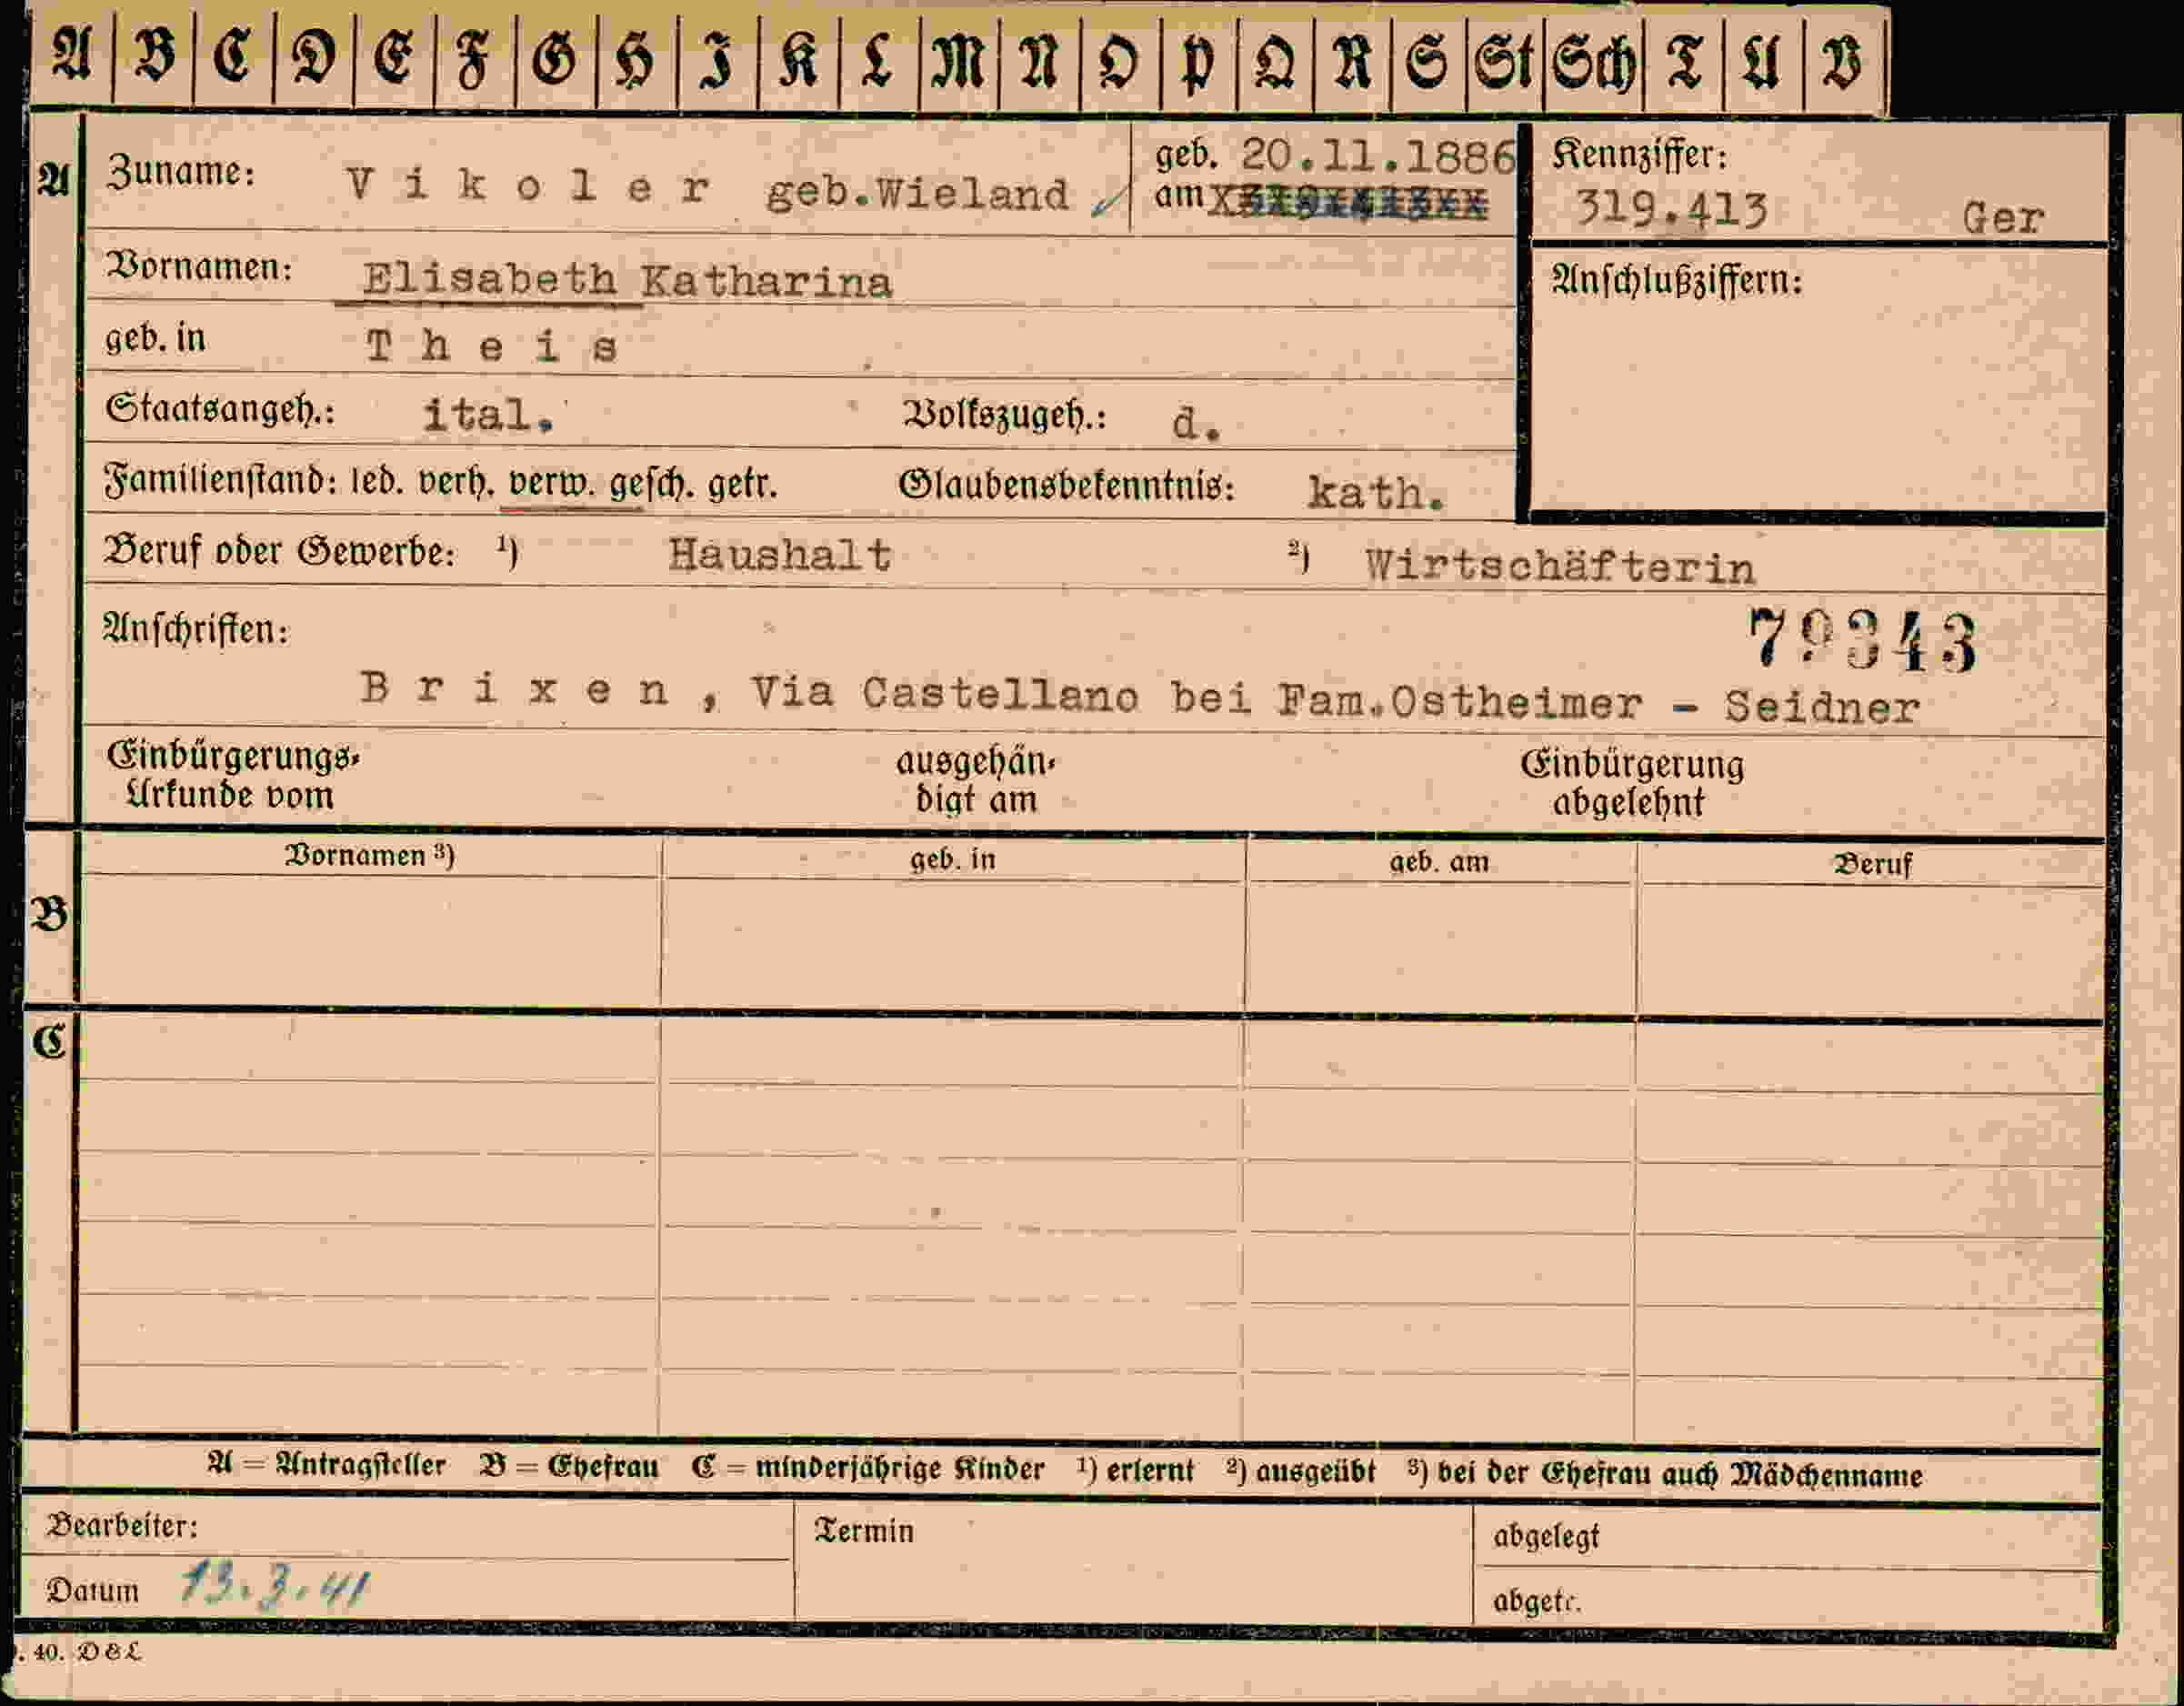 A B C D E F G H I K L M N O P Q R S St Sch T U V
A Zuname: Vikoler geb.Wieland geb. am 20.11.1886
Kennziffer: 319.413 Ger
Vornamen: Elisabeth Katharina
Anschlußziffern:
geb. in Theis
Staatsangeh.: ital. Volkszugeh.: d.
Familienstand: led. verh. verw. gesch. getr. Glaubensbekenntnis: kath.
Beruf oder Gewerbe: ¹) Haushalt ²) Wirtschäfterin
Anschriften: 79343
Brixen, Via Castellano bei Fam.Ostheimer - Seidner
Einbürgerungs-Urkunde vom ausgehändigt am Einbürgerung abgelehnt
Vornamen ³) geb. in geb. am Beruf
B
C
A = Antragsteller B = Ehefrau C = minderjährige Kinder ¹) erlernt ²) ausgeübt ³) bei der Ehefrau auch Mädchenname
Bearbeiter: Termin abgelegt
Datum 13.3.41 abgetr.
. 40. D&L